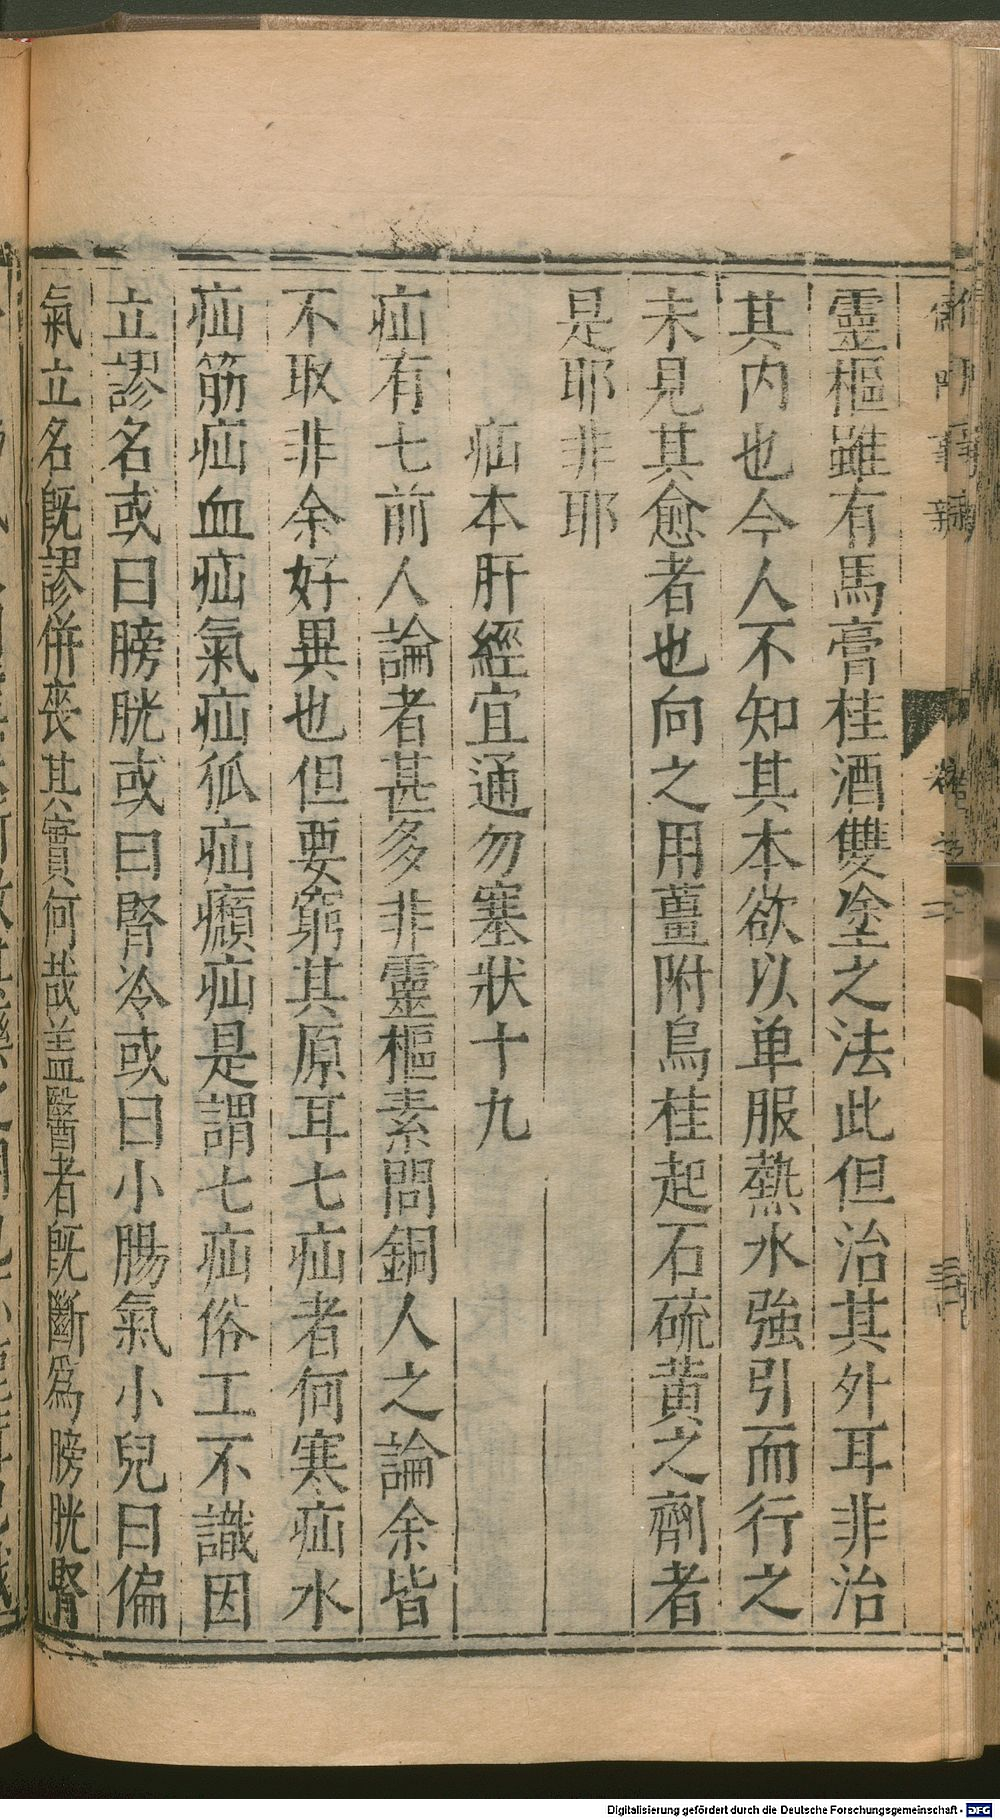 靈樞雖有馬膏桂酒雙塗之法此但治其外耳非治
其内也今人不知其本欲以单服熱水強引而行之
未見其愈者也向之用薑附烏桂起石硫黄之劑者
是耶非耶
疝本肝經宜通勿塞狀十九
疝有七前人論者甚多非靈樞素問銅人之論余皆
不取非余好異也但要窮其原耳七疝者何寒疝水
疝筋疝血疝氣疝狐疝㿗疝是謂七疝俗工不識因
立謬名或曰膀胱或曰腎冷或曰小腸氣小兒曰偏
氣立名旣謬併丧其實何哉盖醫者旣斷爲膀胱腎
卷之二
Digitalisierung gefördert durch die Deutsche Forschungsgemeinschaft - DFG